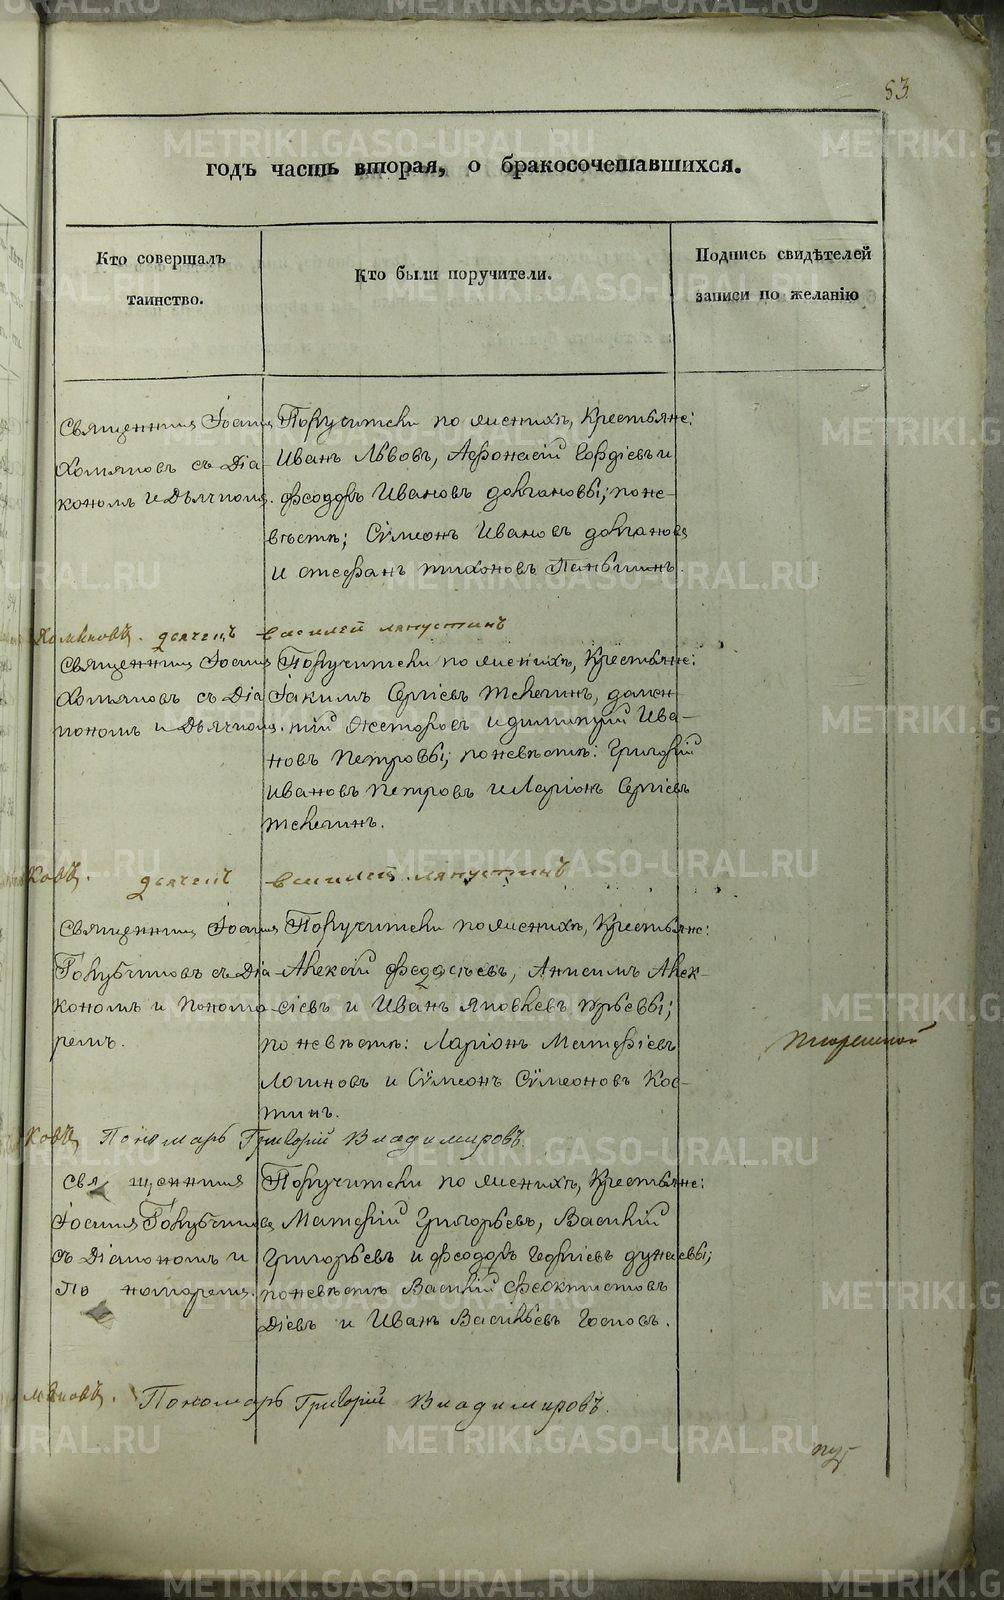 53
годъ часть вторая, о бракосочетавшихся.
Кто совершалъ
таинство.
Кто были поручители.
Подпись свидѣтелей
записи по желанію
Священникъ Іоаннъ
Хомяковъ съ Діа-
кономъ и Дьячкомъ.
Поручители по женихѣ, Крестьяне:
Иванъ Львовъ, Афонасій Гордіевъ и
Феодоръ Ивановъ Долгановы; по не-
вѣстѣ; Сѵмеонъ Ивановъ Долгановъ
и Стефанъ Тихоновъ
Хомяковъ. дьячекъ василей ляпустинъ
Священникъ Іоаннъ
Хомяковъ съ Діа
кономъ и Дьячкомъ.
Поручители по женихѣ, Крестьяне:
Іакимъ Сергіевъ Телегинъ, Домен-
тій Несторовъ и Димитрій Ива-
новъ Петровы; по невѣстѣ: Григорій
Ивановъ Петровъ и Ларіонъ Сергіевъ
Телегинъ.
ковъ. дьячекъ василей ляпустинъ
Священникъ Іоаннъ
Голубчиковъ съ Діа-
кономъ и Понома
ремъ.
Поручители по женихѣ, Крестьяне:
Алексій Федосіевъ, Анисимъ Алек-
сіевъ и Иванъ Яковлевъ
по невѣстѣ: Ларіонъ Матфіевъ
Логиновъ и Сѵмеонъ Сѵмеоновъ Кос-
тинъ.
ковъ Пономарь Григорій Владимировъ
Священникъ
Іоаннъ
съ Діакономъ и
Пономаремъ.
Поручители по женихѣ, Крестьяне:
Матфій Григорьевъ, Василій
Григорьевъ и Феодоръ Георгіевъ Дунаевы;
по невѣстѣ Василій Феоктистовъ
Діевъ и Иванъ Васильевъ
мяковъ. Пономарь Григорій Владимировъ.